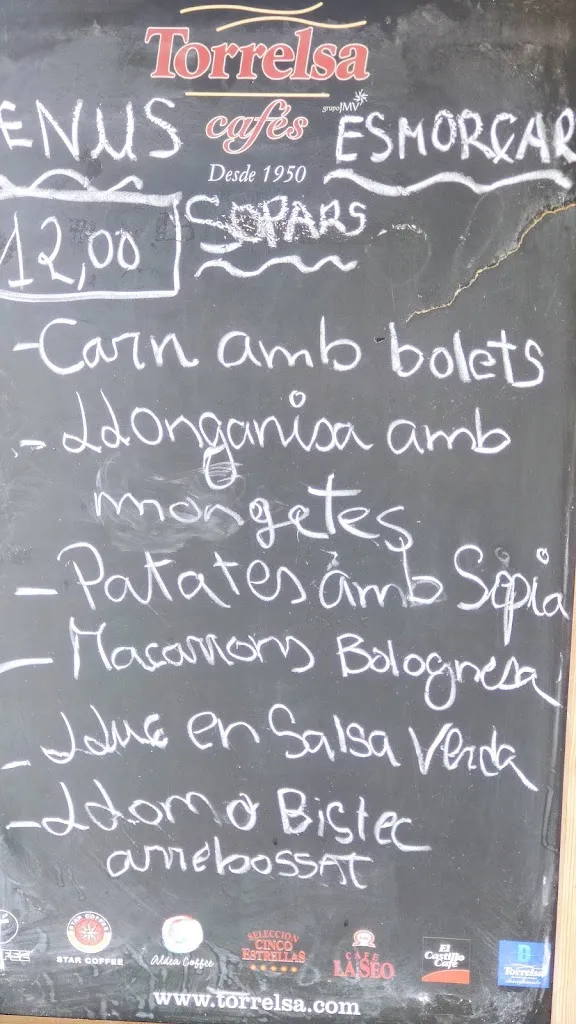 Torrelsa
cafés
grupoIMV
Desde 1950
ENUS ESMORÇAR
12,00 SOPARS
-Carn amb bolets
-Llonganisa amb
mongetes
-Patates amb Sepia
-Macarrons Bolognesa
-Lluç en Salsa Verda
-Llom o Bistec
arrebossat
STAR COFFEE
STAR COFFEE
Aldea Coffee
SELECCION
CINCO
ESTRELLAS
CAFE
LA SEO
El
Castillo
Café
Torrelsa
www.torrelsa.com